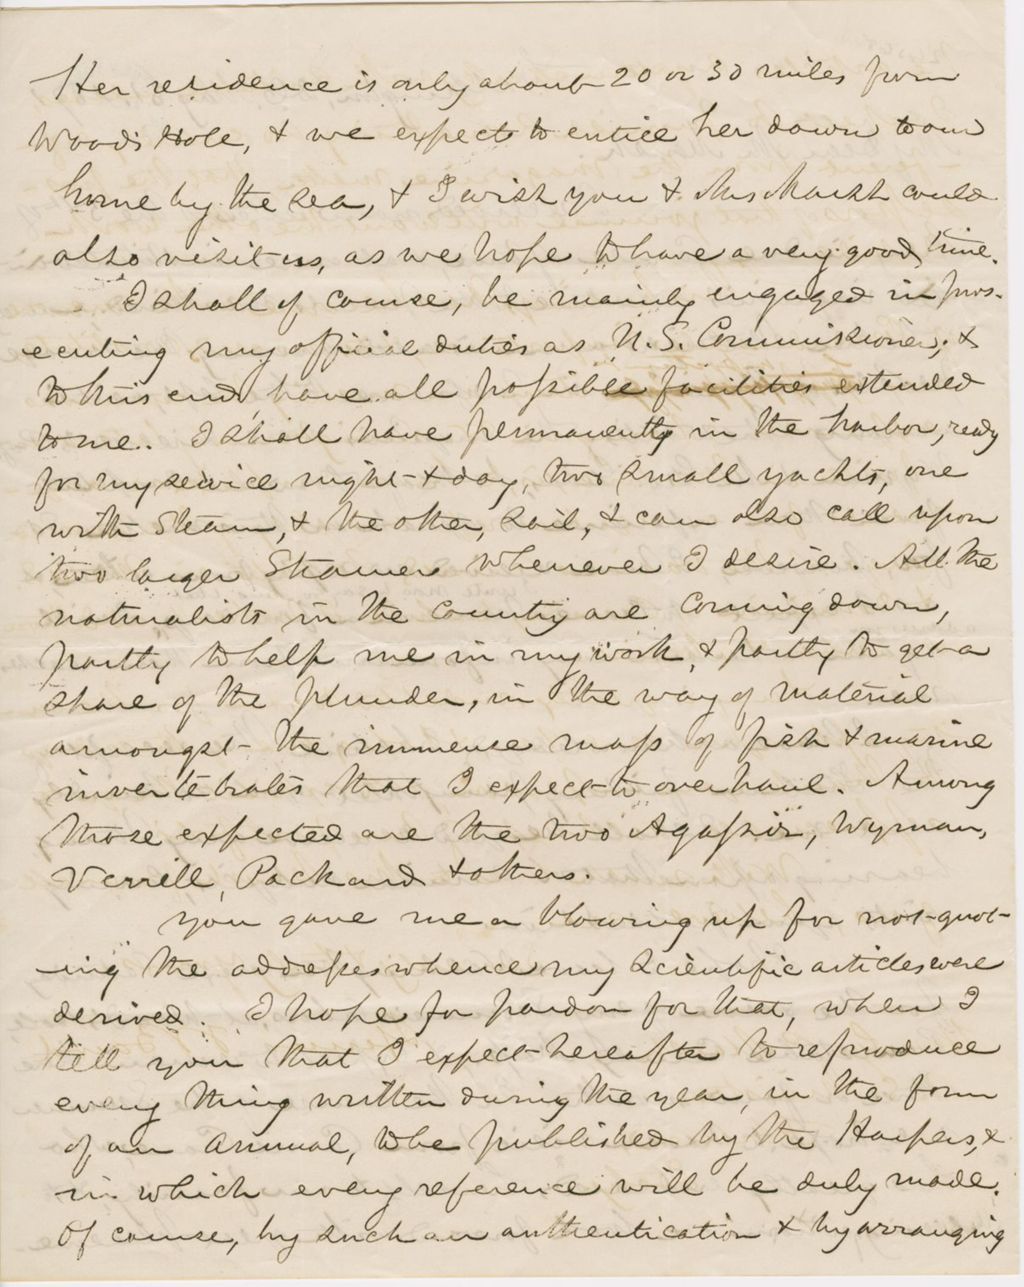 Her residence is only about 20 or 30 miles from
Woods Hole, & we expect to entice her down to our
home by the sea, & I wish you & Mrs Marsh could
also visit us, as we hope to have a very good time.
I shall of course, be mainly engaged in pros-
ecuting my official duties as U.S. Commissioner; &
to this end, have all possible facilities extended
to me. I shall have permanently in the harbor, ready
for my service night & day, two small yachts, one
with steam, & the other, sail, & can also call upon
two larger Steamers whenever I desire. All the
naturalists in the country are coming down,
partly to help me in my work, & partly to get a
share of the plunder, in the way of material
amongst the immense mass of fish & marine
invertebrates that I expect to overhaul. Among
those expected are the two Agassiz, Wyman,
Verrill, Packard & others.
You gave me a blowing up for not quot-
ing the addresses whence my scientific articles were
derived. I hope for pardon for that, when I
tell you that I expect hereafter to reproduce
every thing written during the year, in the form
of an Annual, to be published by the Harpers, &
in which every reference will be duly made.
Of course, by such an authentication & by arranging